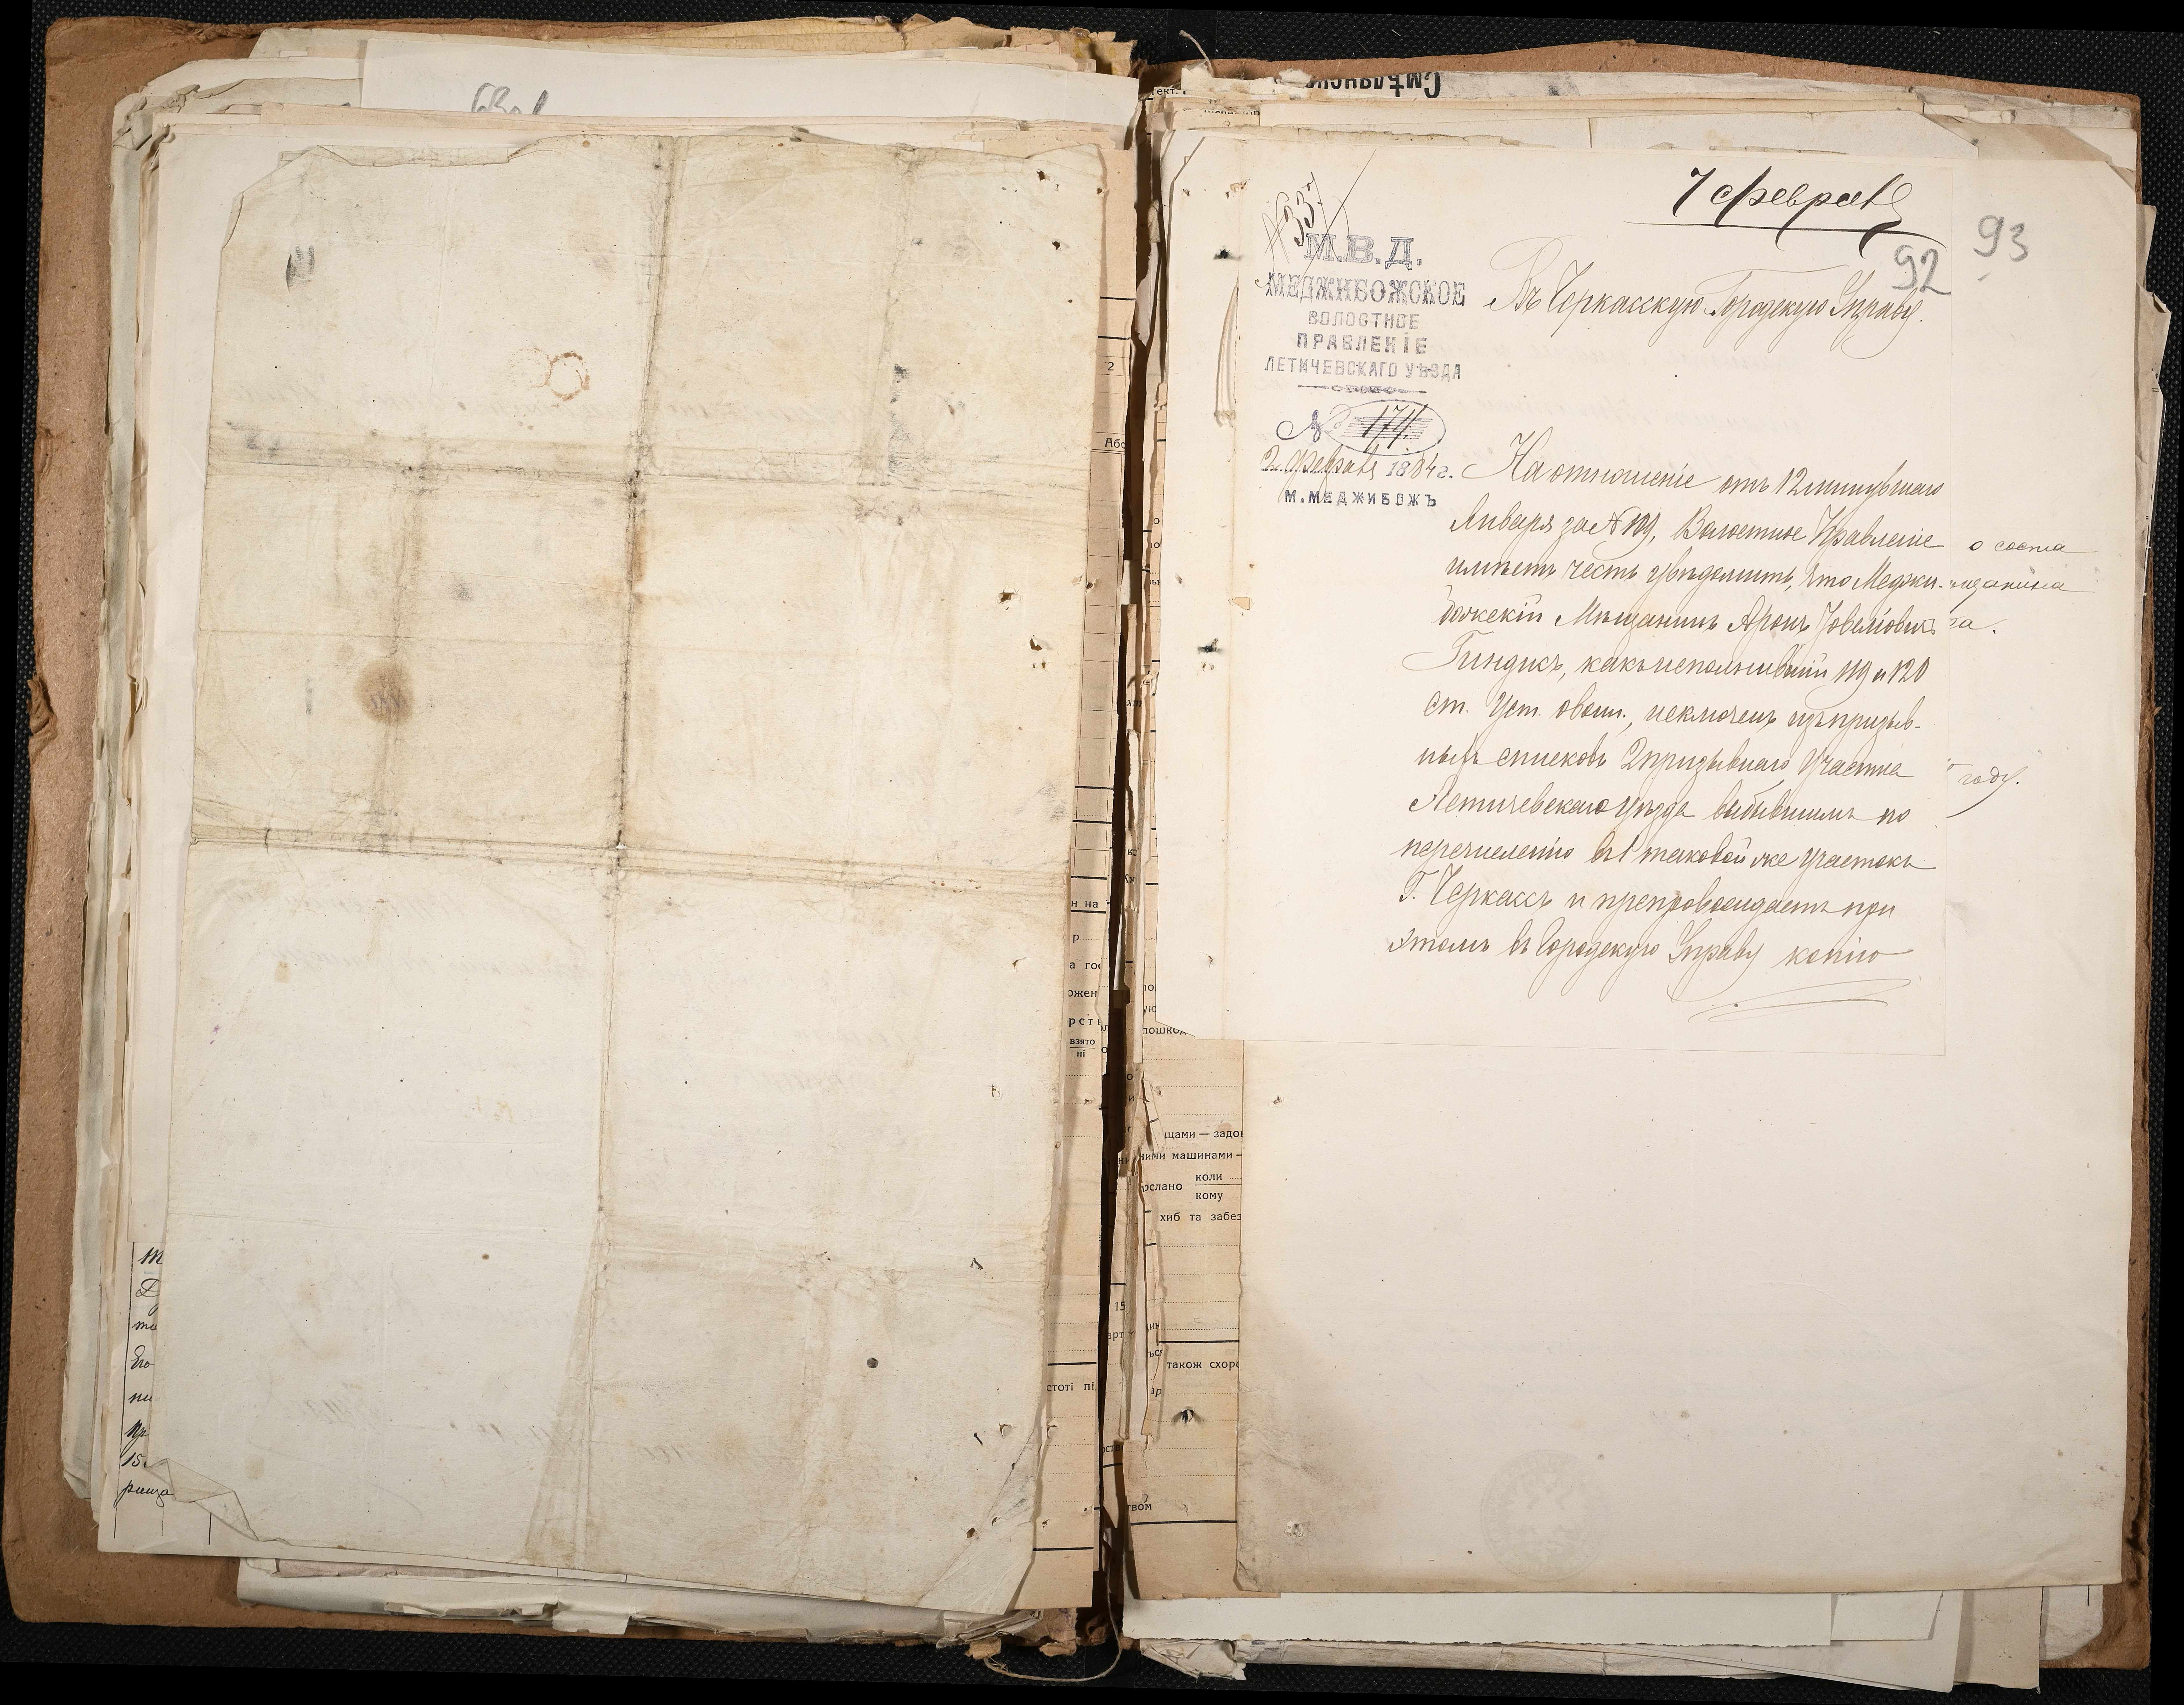 7 февраля
93
92
№ 337
М.В.Д.
МЕДЖИБОЖСКОЕ
ВОЛОСТНОЕ
ПРАВЛЕНІЕ
ЛЕТИЧЕВСКАГО УѢЗДА
№ 174.
2 февраля 1884 г.
М. МЕДЖИБОЖЪ
Въ Черкасскую Городскую Управу.
На отношеніе отъ 12 минувшаго
Января за № 109, Волостное Правленіе
имѣетъ честь увѣдомить, что Меджи-
божскій Мѣщанинъ Аронъ
Гиндисъ, какъ исполнившій 119 и 120
ст. Уст. о воин., исключенъ изъ призыв-
ныхъ списковъ 2 призывнаго Участка
Летичевскаго уѣзда выбывшимъ по
перечисленію въ 1 таковой же участокъ
Г. Черкассъ и препровождаетъ при
этомъ въ Городскую Управу копію
о соста
мѣщанина
та.
году.
Смѣлянск
2
Або
н на
р
а го
ожен
рсть
взято
ні
15
арт
стоті пі
пошкод
щами — задо
ними машинами —
ослано
коли
кому
хиб та забез
також схоро
твом
т
Его
пи
15